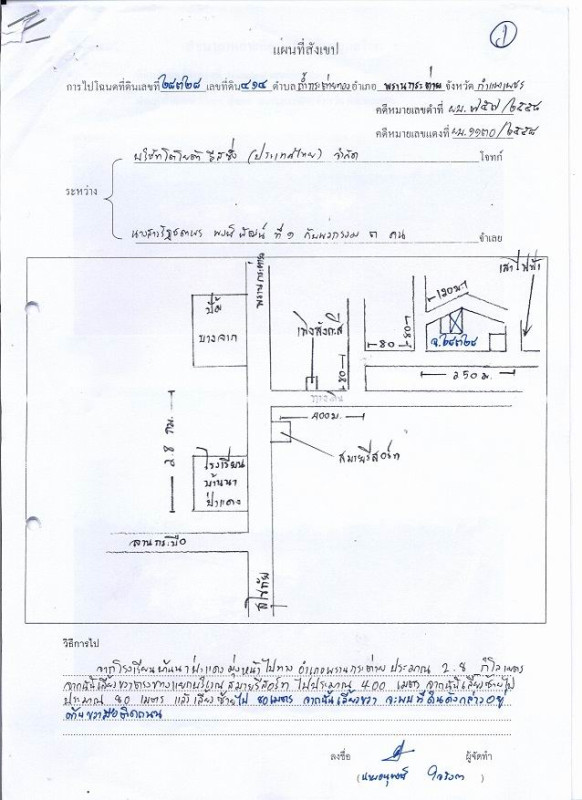 ๑
แผนที่สังเขป
การไปโฉนดที่ดินเลขที่ ๒๘๗๒๘ เลขที่ดิน ๔๑๔ ตำบล ถ้ำกระต่ายทอง อำเภอ พรานกระต่าย จังหวัด กำแพงเพชร
คดีหมายเลขดำที่ ผบ. ๗๕๗/๒๕๕๘
คดีหมายเลขแดงที่ ผบ. ๑๑๓๐/๒๕๕๘
บริษัทโตโยต้า ลีสซิ่ง (ประเทศไทย) จำกัด โจทก์
ระหว่าง
ที่ ๑ กับพวกรวม ๓ คน จำเลย
พรานกระต่าย
ปั๊ม
บางจาก
เพิงสังกะสี
80
80
80
120 ม.
เสาไฟฟ้า
ฉ.๒๘๗๒๘
250 ม.
ทางดิน
400 ม.
สมายรีสอร์ท
2.8 กม.
โรงเรียน
บ้านนา
ป่าแดง
ลานกระบือ
สุโขทัย
วิธีการไป
จากโรงเรียนบ้านนาป่าแดง มุ่งหน้าไปทาง อำเภอพรานกระต่าย ประมาณ 2.8 กิโลเมตร
จากนั้นเลี้ยวขวาตรงทางแยกบริเวณ สมายรีสอร์ท ไปประมาณ 400 เมตร จากนั้นเลี้ยวซ้ายไป
ประมาณ 80 เมตร แล้วเลี้ยวซ้ายไป 80 เมตร จากนั้นเลี้ยวขวา จะพบที่ดินดังกล่าวอยู่
ด้านขวามือติดถนน
ลงชื่อ ผู้จัดทำ